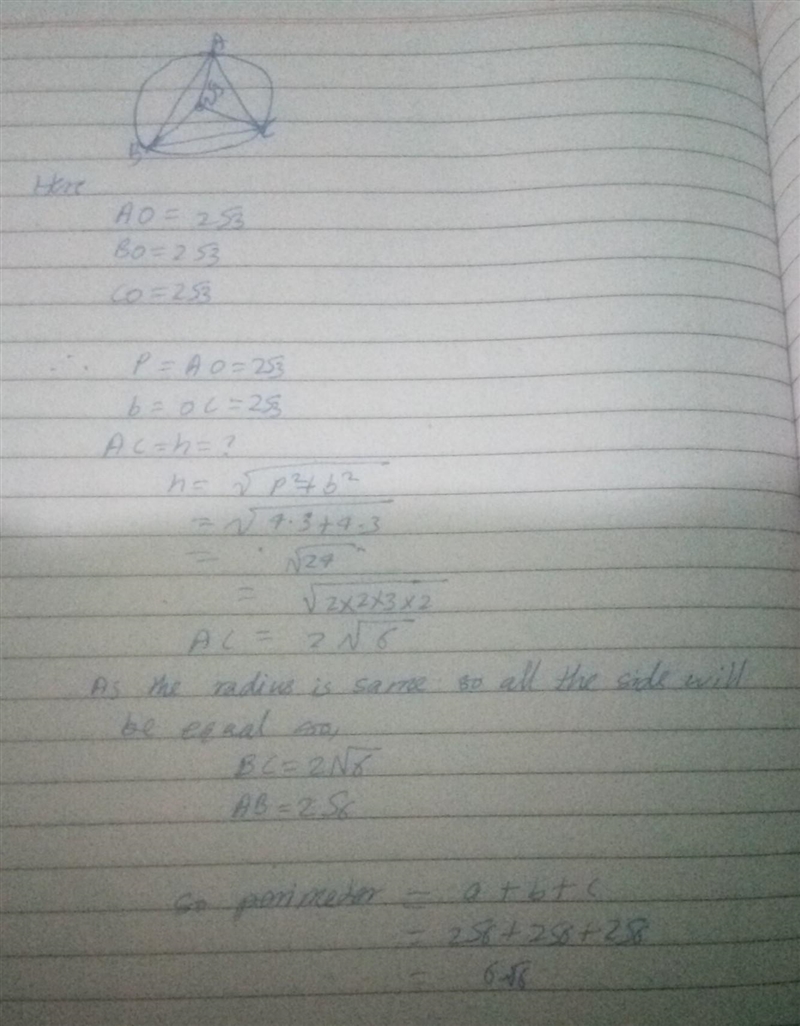 A
2√3
B
C
Here
AO = 2√3
BO = 2√3
CO = 2√3
∴ P = AO = 2√3
b = OC = 2√3
AC = h = ?
h = √P²+b²
= √4·3+4·3
= √24
= √2×2×3×2
AC = 2√6
As the radius is same so all the side will
be equal so,
BC = 2√6
AB = 2√6
So perimeter = a + b + c
= 2√6 + 2√6 + 2√6
= 6√6